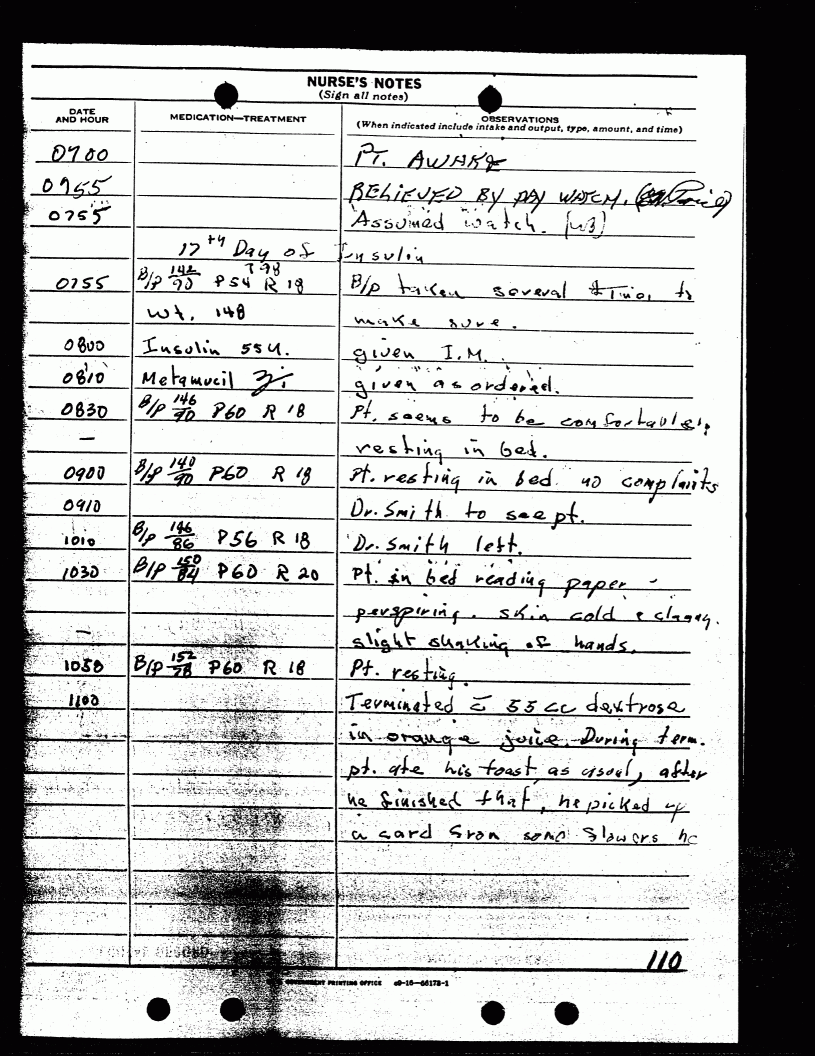 NURSE'S NOTES
(Sign all notes)
DATE AND HOUR MEDICATION—TREATMENT OBSERVATIONS
(When indicated include intake and output, type, amount, and time)
0700 PT. AWAKE
0755 RELIEVED BY DAY WATCH.
0755 Assumed watch.
17th Day of Insulin
T 98
0755 B/P 142/90 P 54 R 18 B/p taken several times to
Wt. 148 make sure.
0800 Insulin 55U. given I.M.
0810 Metamucil ʒi given as ordered.
0830 B/P 146/90 P60 R 18 Pt. seems to be comfortable,
— resting in bed.
0900 B/P 140/90 P60 R 18 Pt. resting in bed no complaints
0910 Dr. Smith to see pt.
1010 B/P 146/86 P56 R 18 Dr. Smith left.
1030 B/P 150/84 P60 R 20 Pt. in bed reading paper -
perspiring. skin cold & clammy.
— slight shaking of hands.
1050 B/P 152/78 P60 R 18 Pt. resting.
1100 Terminated c̄ 55 cc dextrose
in orange juice. During term.
pt. ate his toast, as usual, after
he finished that, he picked up
a card from some flowers he
110
GOVERNMENT PRINTING OFFICE c9-16—66173-1